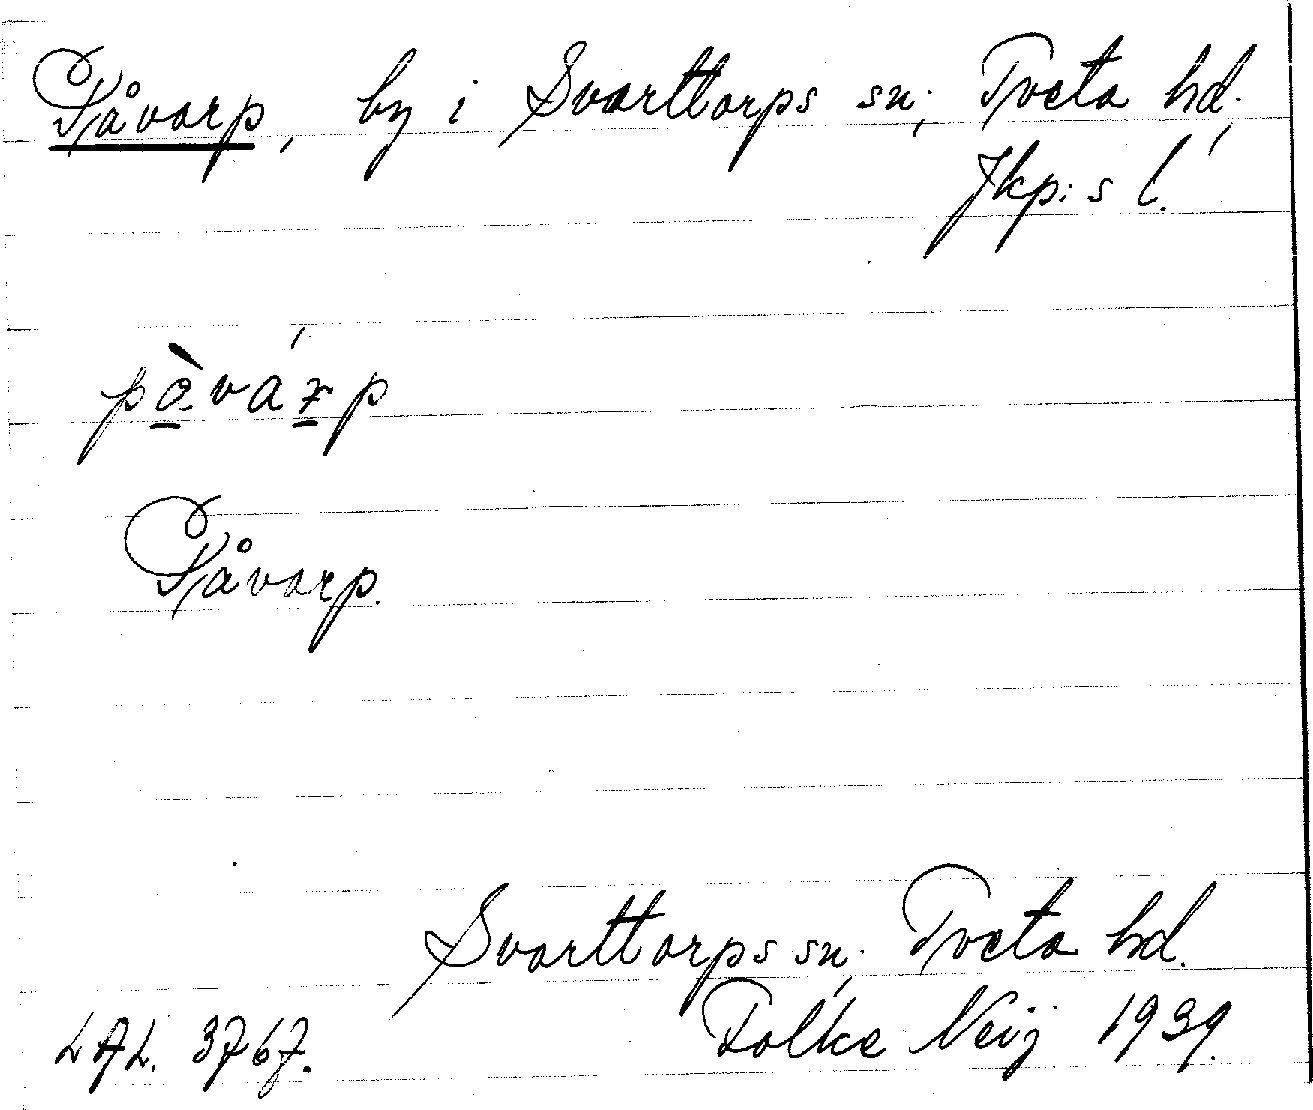 Påvarp, by i Svarttorps sn; Tveta hd;
Jkp:s l.
Påvarp.
Svarttorps sn; Tveta hd.
LAL. 3767. Folke Neij 1939.